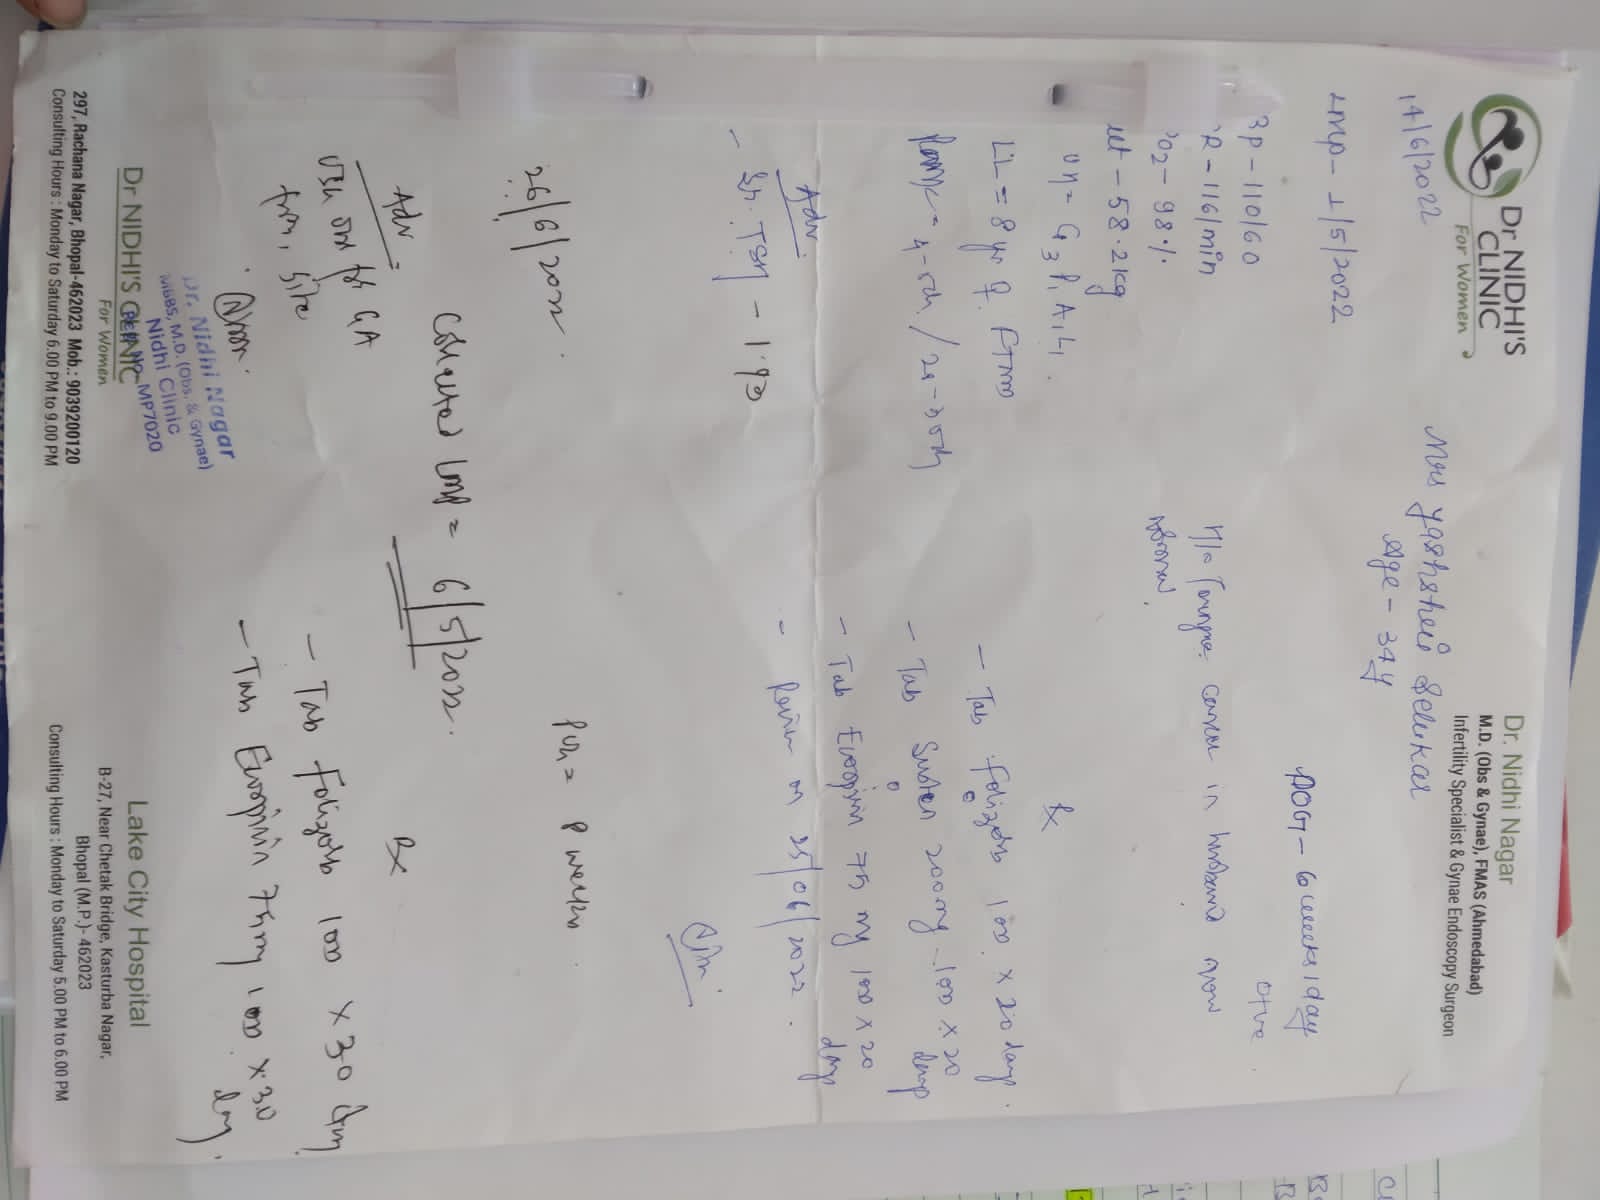 Dr NIDHI'S
CLINIC
For Women
Dr. Nidhi Nagar
M.D. (Obs & Gynae), FMAS (Ahmedabad)
Infertility Specialist & Gynae Endoscopy Surgeon
14/6/2022
Mrs Yashshri Selukar
Age - 34y
LMP - 1/5/2022
POG - 6 weeks 1 day
O+ve
BP - 110/60
PR - 116/min
98%
wt - 58.2kg
H/o Tongue cancer in husband now
normal.
G3 P1 A1 L1.
LL = 8 yr ♀ FTND
4-5d / 28-30d
Rx
- Tab Folizorb 1 OD x 20 days.
- Tab Susten 200mg 1 OD x 20 days
- Tab Ecosprin 75 mg 1 OD x 20 days
- Review on 25/06/2022.
Adv.
- Sr. TSH - 1.93
26/6/2022.
P/V = 8 weeks.
Corrected LMP = 6/5/2022.
Adv =
USG OBS for GA
FHR, site
Rx
- Tab Folizorb 1 OD x 30 day
- Tab Ecosprin 75mg 1 OD x 30 day.
Dr. Nidhi Nagar
MBBS, M.D. (Obs. & Gynae)
Nidhi Clinic
MP7020
Dr NIDHI'S CLINIC
For Women
297, Rachana Nagar, Bhopal-462023 Mob.: 9039200120
Consulting Hours : Monday to Saturday 6.00 PM to 9.00 PM
Lake City Hospital
B-27, Near Chetak Bridge, Kasturba Nagar,
Bhopal (M.P.)- 462023
Consulting Hours : Monday to Saturday 5.00 PM to 6.00 PM